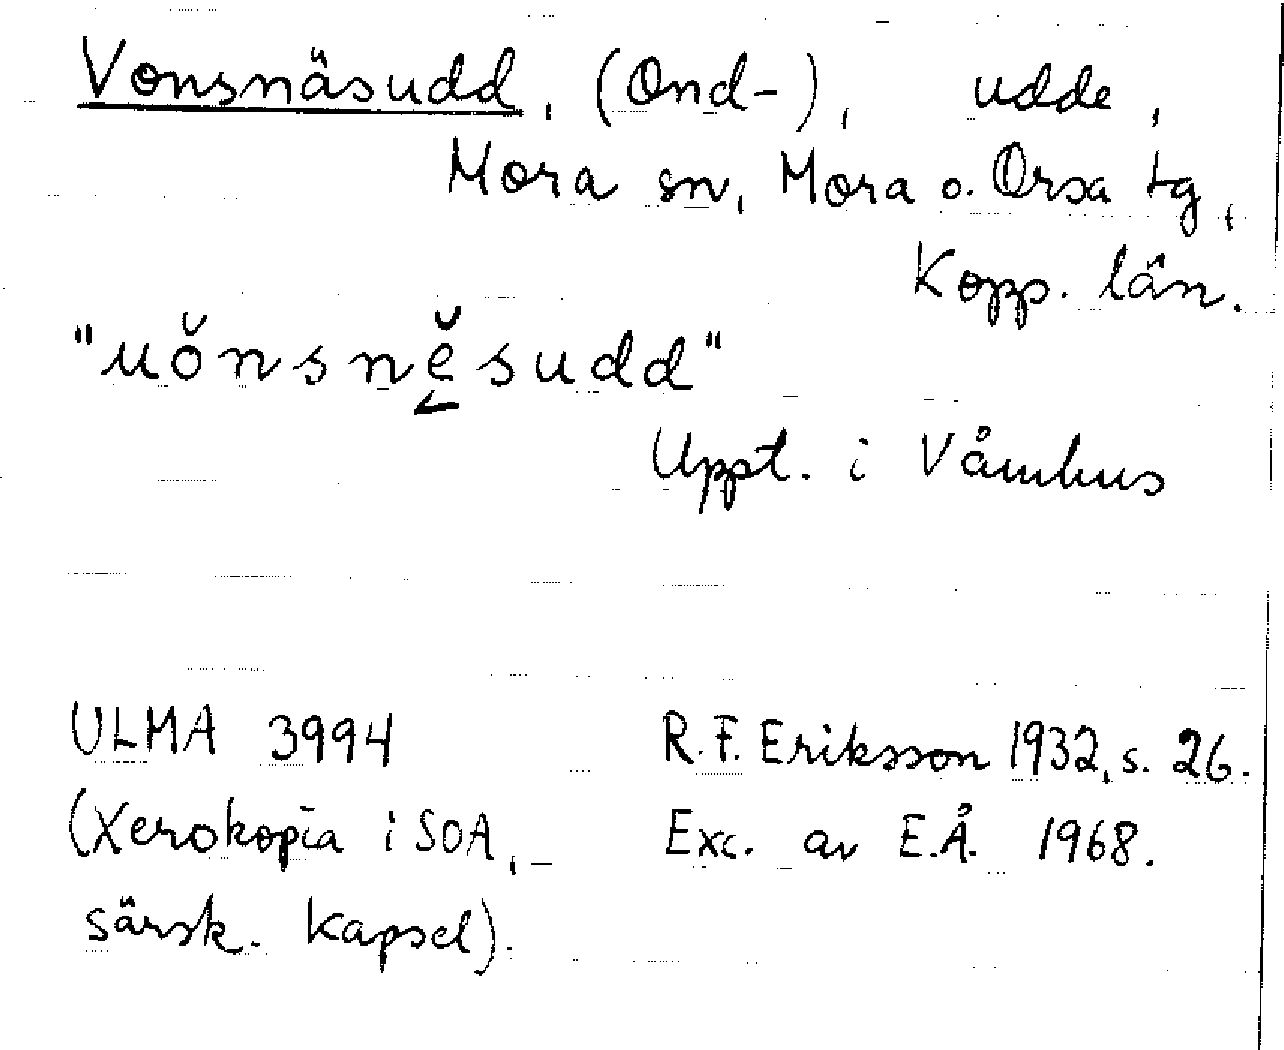 Vonsnäsudd, (Ond-), udde,
Mora sn, Mora o. Orsa tg,
Kopp. län.
"uŏnsnĕ̱sudd"
Uppt. i Våmhus
ULMA 3994 R.F. Eriksson 1932, s. 26.
(Xerokopia i SOA, Exc. av E.Å. 1968.
särsk. kapsel).